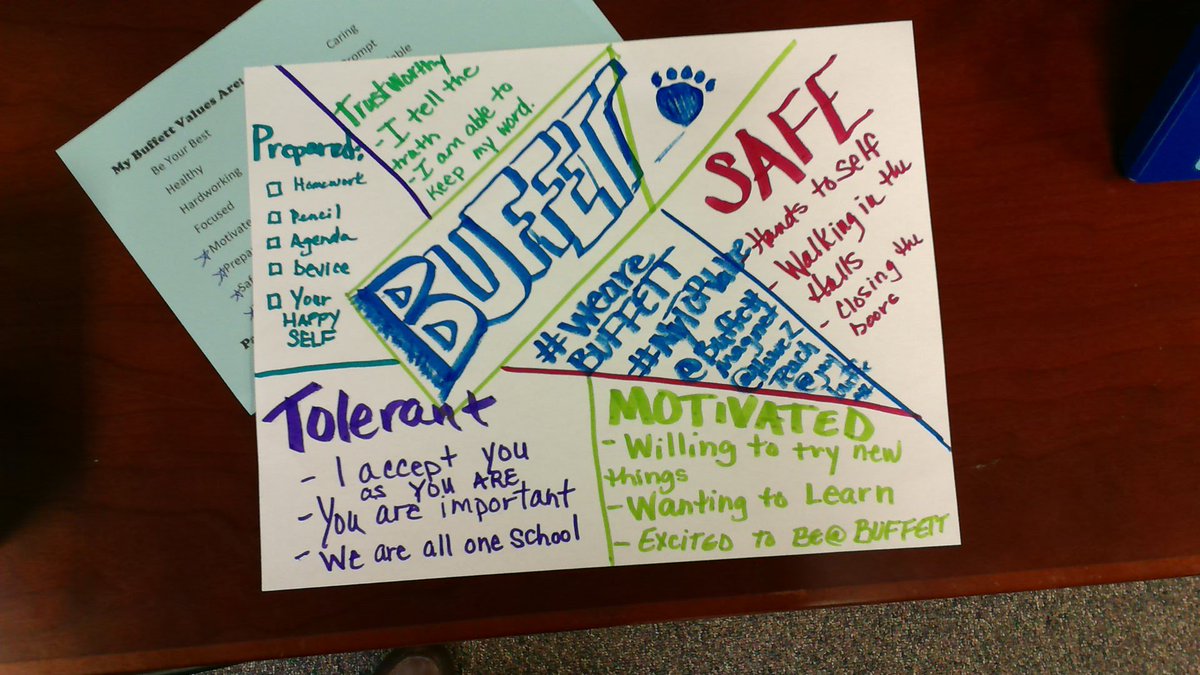 Caring
My Buffett Values Are:
Be Your Best
Healthy
Hardworking
Focused
Trustworthy
- I tell the
truth
- I am able to
keep my word.
Prepared:
Homework
Pencil
Agenda
Device
Your
HAPPY
SELF
BUFFETT
SAFE
- Hands to self
- Walking in the
Halls
- Closing the
doors
#Weare
BUFFETT
Tolerant
- I accept you
as YOU ARE
- You are important
- We are all one School
MOTIVATED
- Willing to try new
things
- Wanting to Learn
- EXCITED TO BE@ BUFFETT